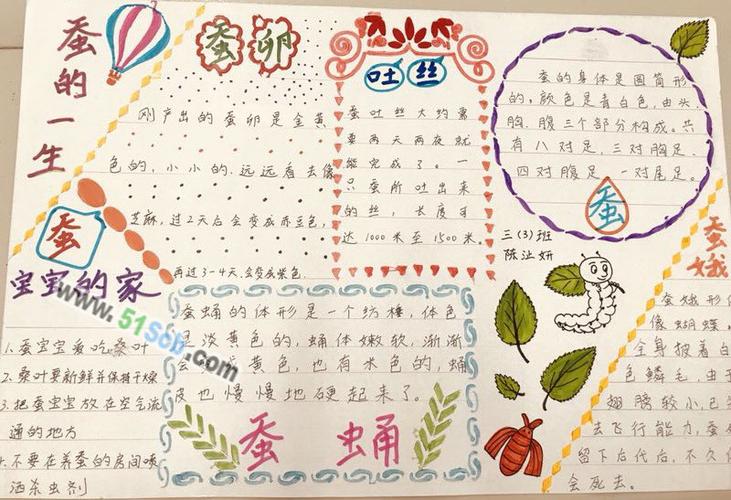 蚕的一生
蚕卵
刚产出的蚕卵是金黄
色的,小小的.远远看去像
芝麻,过2天后会变成赤豆色,
再过3-4天.会变成紫色.
吐丝
蚕吐丝大约需
要两天两夜就
能完成了。一
只蚕所吐出来
的丝,长度可
达1000米至1500米。
蚕的身体是圆筒形
的,颜色是青白色,由头.
胸.腹三个部分构成。共
有八对足,三对胸足.
四对腹足.一对尾足。
蚕
三(3)班
陈沚妍
蚕
宝宝的家
1.蚕宝宝爱吃桑叶
2.桑叶要新鲜并保持干燥
3.把蚕宝宝放在空气流
通的地方
4.不要在养蚕的房间喷
洒杀虫剂
蚕蛹的体形是一个纺棰,体色
是淡黄色的,蛹体嫩软,渐渐
会 黄色,也有米色的,蛹
皮也慢慢地硬起来了.
蚕蛹
蚕蛾
蚕蛾形
像蝴蝶.
全身披着白
色鳞毛,由于
翅膀较小,已
去飞行能力,蚕
留下后代后,不久
会死去。
www.51Sob.com